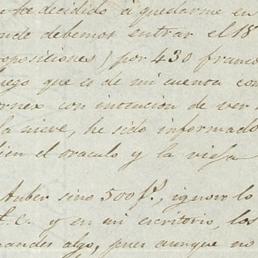 he decidido á quedarme en
nde debemos entrar el 18
oposiciones) por 430 franc
uego que es de mi cuenta con
ornex con intencion de ver
la nieve, he sido informado
bien el oraculo y la vieja
Auber sino 500 f.s, ignoro lo
t.c. y en mi escritorio, los
mandes algo, pues aunque no